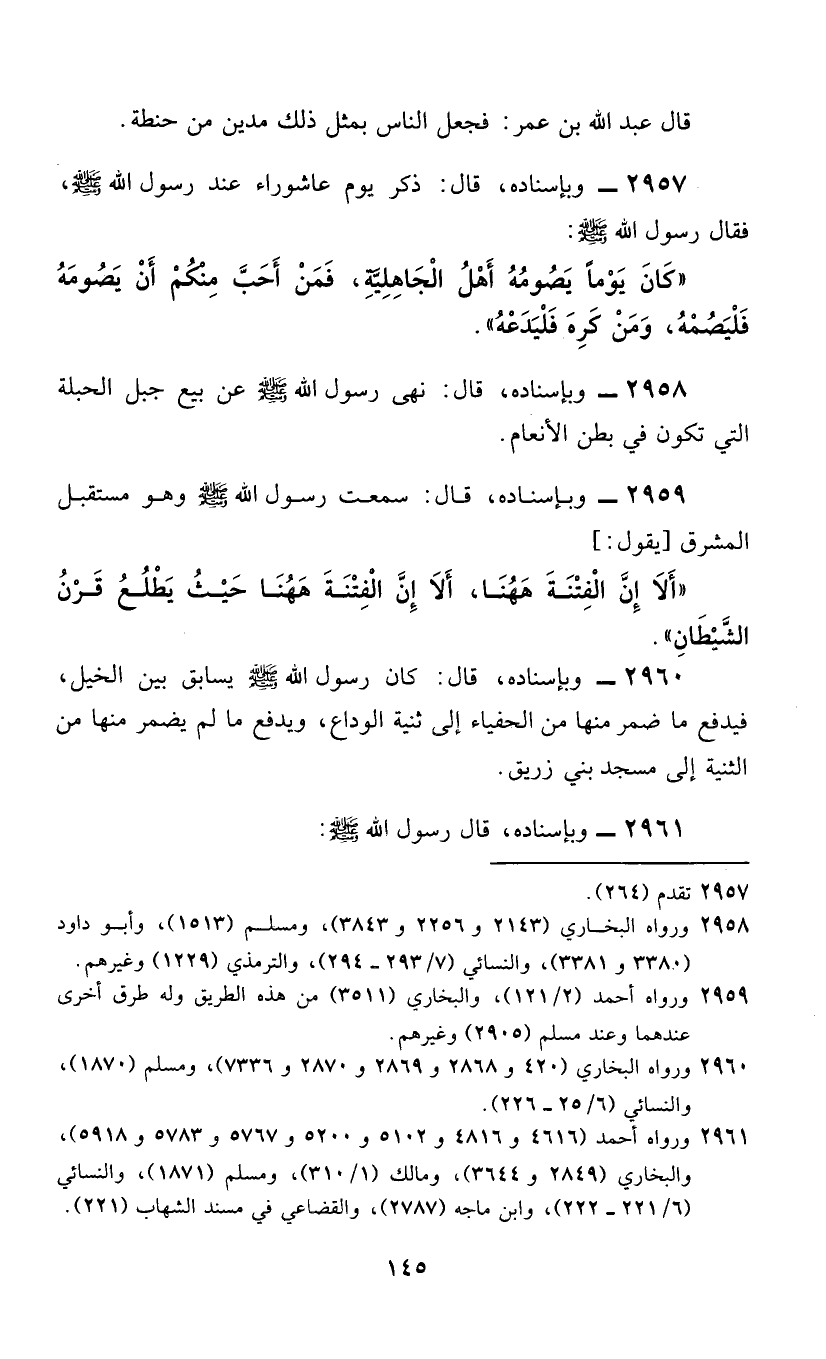 قال عبد الله بن عمر: فجعل الناس بمثل ذلك مدين من حنطة.
٢٩٥٧ ـ وبإسناده، قال: ذكر يوم عاشوراء عند رسول الله ﷺ،
فقال رسول الله ﷺ:
«كَانَ يَوْماً يَصُومُهُ أَهْلُ الْجَاهِلِيَّةِ، فَمَنْ أَحَبَّ مِنْكُمْ أَنْ يَصُومَهُ
فَلْيَصُمْهُ، وَمَنْ كَرِهَ فَلْيَدَعْهُ».
٢٩٥٨ ـ وبإسناده، قال: نهى رسول الله ﷺ عن بيع جبل الحبلة
التي تكون في بطن الأنعام.
٢٩٥٩ ـ وبإسناده، قال: سمعت رسول الله ﷺ وهو مستقبل
المشرق [يقول:]
«أَلَا إِنَّ الْفِتْنَةَ هَهُنَا، أَلَا إِنَّ الْفِتْنَةَ هَهُنَا حَيْثُ يَطْلُعُ قَرْنُ
الشَّيْطَانِ».
٢٩٦٠ ـ وبإسناده، قال: كان رسول الله ﷺ يسابق بين الخيل،
فيدفع ما ضمر منها من الحفياء إلى ثنية الوداع، ويدفع ما لم يضمر منها من
الثنية إلى مسجد بني زريق.
٢٩٦١ ـ وبإسناده، قال رسول الله ﷺ:
٢٩٥٧ تقدم (٢٦٤).
٢٩٥٨ ورواه البخاري (٢١٤٣ و ٢٢٥٦ و ٣٨٤٣)، ومسلم (١٥١٣)، وأبو داود
(٣٣٨٠ و ٣٣٨١)، والنسائي (٢٩٣/٧ ـ ٢٩٤)، والترمذي (١٢٢٩) وغيرهم.
٢٩٥٩ ورواه أحمد (١٢١/٢)، والبخاري (٣٥١١) من هذه الطريق وله طرق أخرى
عندهما وعند مسلم (٢٩٠٥) وغيرهم.
٢٩٦٠ ورواه البخاري (٤٢٠ و ٢٨٦٨ و ٢٨٦٩ و ٢٨٧٠ و ٧٣٣٦)، ومسلم (١٨٧٠)،
والنسائي (٢٥/٦ ـ ٢٢٦).
٢٩٦١ ورواه أحمد (٤٦١٦ و ٤٨١٦ و ٥١٠٢ و ٥٢٠٠ و ٥٧٦٧ و ٥٧٨٣ و ٥٩١٨)،
والبخاري (٢٨٤٩ و ٣٦٤٤)، ومالك (٣١٠/١)، ومسلم (١٨٧١)، والنسائي
(٢٢١/٦ ـ ٢٢٢)، وابن ماجه (٢٧٨٧)، والقضاعي في مسند الشهاب (٢٢١).
١٤٥